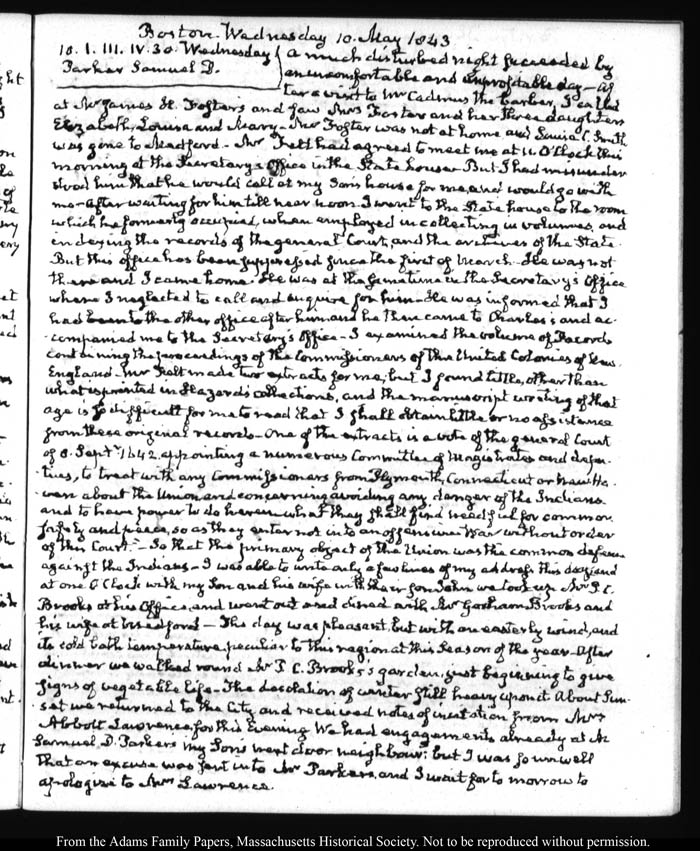 Boston. Wednesday 10. May 1843
10. I. III. IV. 30. Wednesday
Parker Samuel D.
a much disturbed night succeeded by
an uncomfortable and unprofitable day — Af
ter a visit to Mr Cadmus the barber, I called
at Mr James H. Fosters and saw Mrs Foster and her three daughters
Elizabeth, Louisa and Mary — Mr Foster was not at home and Louisa C. Smith
was gone to Medford — Mr Felt had agreed to meet me at 11 O'Clock this
morning at the Secretary's Office in the State house — But I had misunder
stood him that he would call at my Son's house for me, and would go with
me — after waiting for him till near noon I went to the State house to the room
which he formerly occupied, when employed in collecting in volumes, and
indexing the records of the general Court, and the archives of the State.
But this office has been suppressed since the first of March. He was not
there and I came home. He was at the same time in the Secretary's Office
where I neglected to call and enquire for him — He was informed that I
had been to the other office after him and he then came to Charles's; and ac
companied me to the Secretary's Office — I examined the volume of Records
containing the proceedings of the Commissioners of the United Colonies of New
England. Mr Felt made two extracts for me, but I found little, other than
what is printed in Hazard's collections, and the manuscript writing of that
age is so difficult for me to read that I shall obtain little or no assistance
from these original records — One of the extracts is a vote of the general Court
of 8. Septr 1642 appointing a numerous Committee of Magistrates and depu
ties, to treat with any Commissioners from Plymouth, Connecticut or New Ha
ven about the Union and concerning avoiding any danger of the Indians
and to have power to do herein what they shall find needful for common
safety and peace, so as they enter not into an offensive War without order
of this Court." — So that the primary object of the Union was the common defence
against the Indians — I was able to write only a few lines of my address this day and
at one O'Clock with my Son and his wife with their son John we took up Mr P. C.
Brooks at his Office, and went out and dined with Mr Gorham Brooks and
his wife at Medford — The day was pleasant, but with an easterly wind, and
its cold bath temperature peculiar to this region at this season of the year. After
dinner we walked round Mr P C. Brooks's garden, just beginning to give
signs of vegetable life — The desolation of winter still heavy upon it. About Sun-
set we returned to the City and received notes of invitation from Mrs
Abbott Lawrence for this Evening. We had engagements already at Mr
Samuel D. Parkers my Sons next door neighbour; but I was so unwell
that an excuse was sent in to Mr Parkers, and I wait for to morrow to
apologize to Mrs Lawrence.
From the Adams Family Papers, Massachusetts Historical Society. Not to be reproduced without permission.